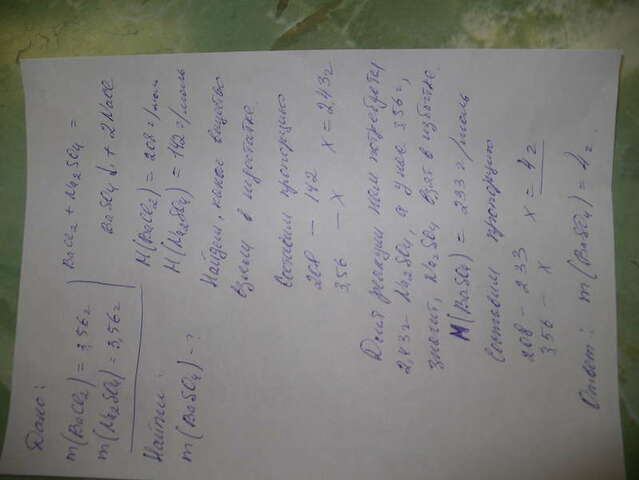 Дано:
m(BaCl2) = 3,56г
m(Na2SO4) = 3,56г
Найти:
m(BaSO4) - ?
BaCl2 + Na2SO4 =
BaSO4↓ + 2NaCl
M(BaCl2) = 208 г/моль
M(Na2SO4) = 142 г/моль
Найдем, какое вещество
взяли в недостатке.
Составим пропорцию
208 - 142
3,56 - x x = 2,43г
Для реакции нам потребует
2,43г Na2SO4, а у нас 3,56г,
значит, Na2SO4 взят в избытке.
M(BaSO4) = 233 г/моль
Составим пропорцию
208 - 233
3,56 - x x = 4г
Ответ: m(BaSO4) = 4г.